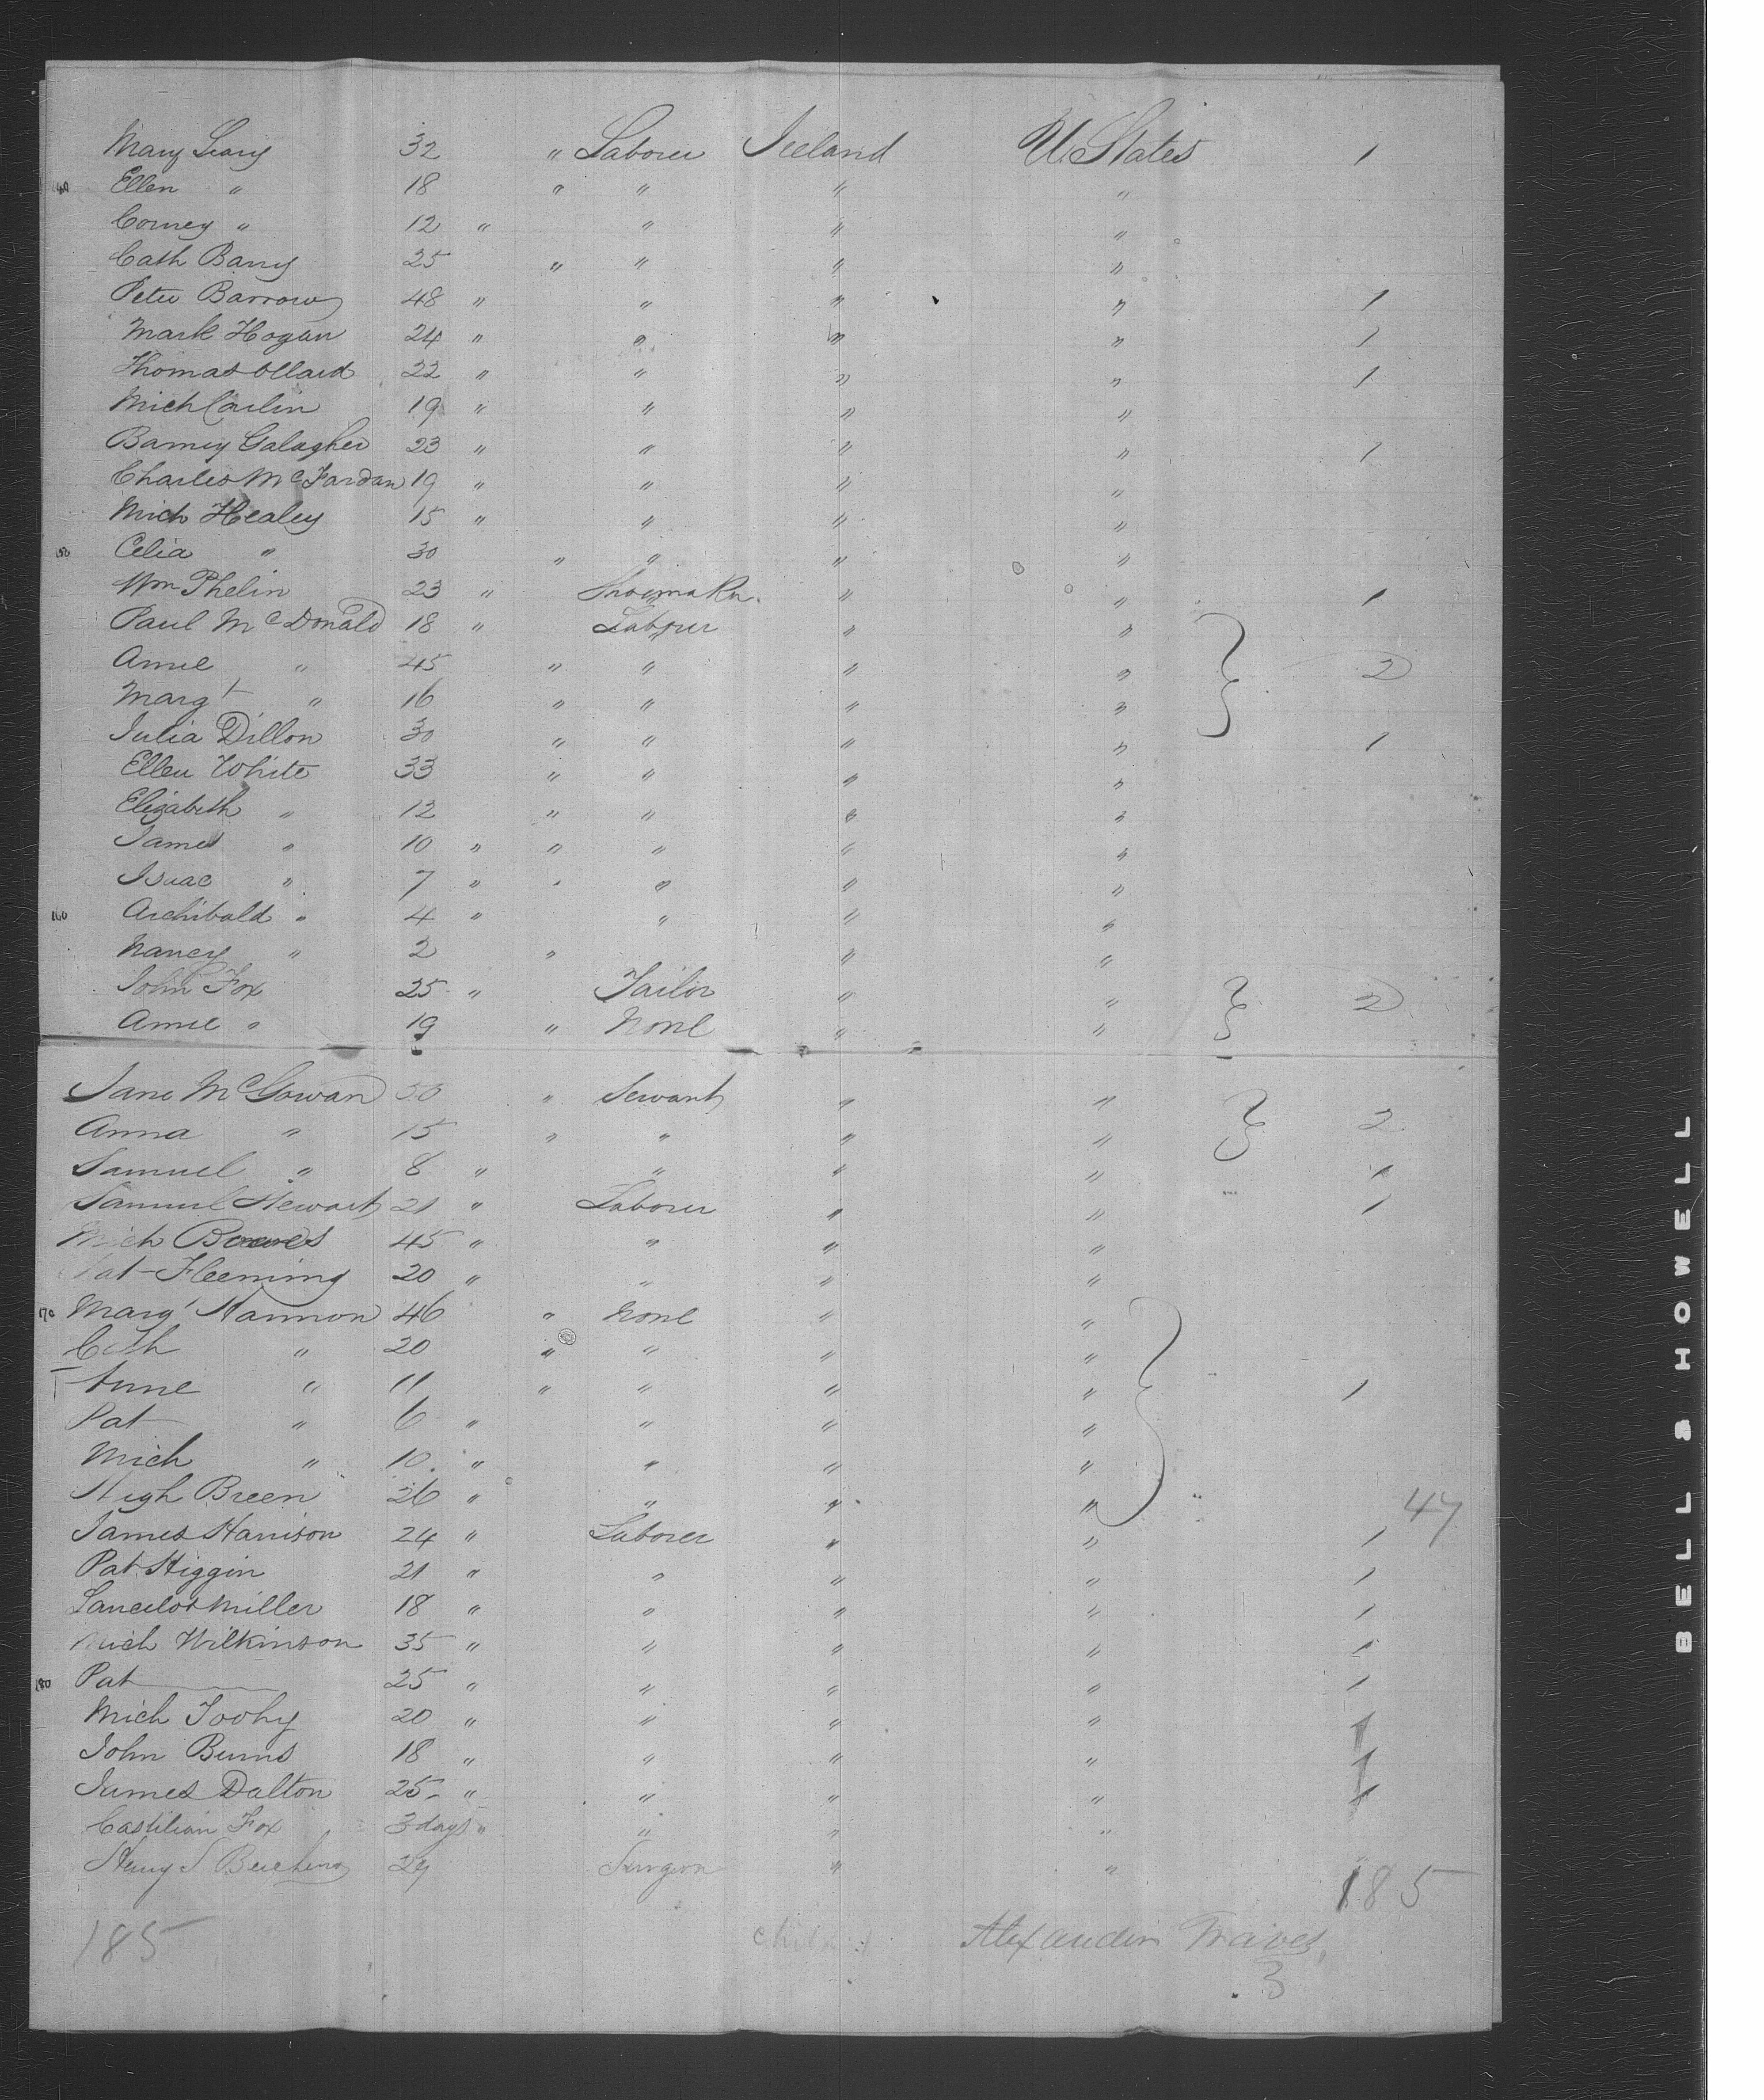 Mary Leary 32 " Laborer Ireland U. States 1
140 Ellen " 18 " " " "
Corney " 12 " " " "
Cath Barry 25 " " " "
Peter Barrow 48 " " " " 1
Mark Hogan 24 " " " " 1
Thomas Ollard 22 " " " " 1
Mich Carlin 19 " " " "
Barney Galagher 23 " " " " 1
Charles McFardan 19 " " " "
Mich Healey 15 " " " "
150 Celia " 30 " " " "
Wm Phelin 23 " Shoemaker " " 1
Paul McDonald 18 " Labourer " "
Anne " 45 " " " " 2
Margt " 16 " " " "
Julia Dillon 30 " " " " 1
Ellen White 33 " " " "
Elizabeth " 12 " " " "
James " 10 " " " " "
Isaac " 7 " " " "
160 Archibald " 4 " " " "
Nancy " 2 " " "
John Fox 25 " Tailor " " 2
Anne " 19 " None " "
Jane McGowan 50 " Servant " " 2
Anna " 15 " " " "
Samuel " 8 " " " " 1
Samuel Stewart 21 " Laborer " " 1
Mich 45 " " " "
Pat Fleeming 20 " " " "
170 Margt Hannon 46 " None " "
Cath " 20 " " " "
Anne " 11 " " " " 1
Pat " 6 " " " "
Mich " 10 " " " "
Hugh Breen 26 " " " " 47
James Harrison 24 " Laborer " " 1
Pat Higgin 21 " " " " 1
Lancelot Miller 18 " " " " 1
Mich Wilkinson 35 " " " " 1
180 Pat 25 " " " " 1
Mich Toohy 20 " " " " 1
John Burns 18 " " " " 1
James Dalton 25 " " " " 1
Castilian Fox 3 days " " " "
Henry S 29 Surgeon " "
185
185
Alexander
3
BELL & HOWELL